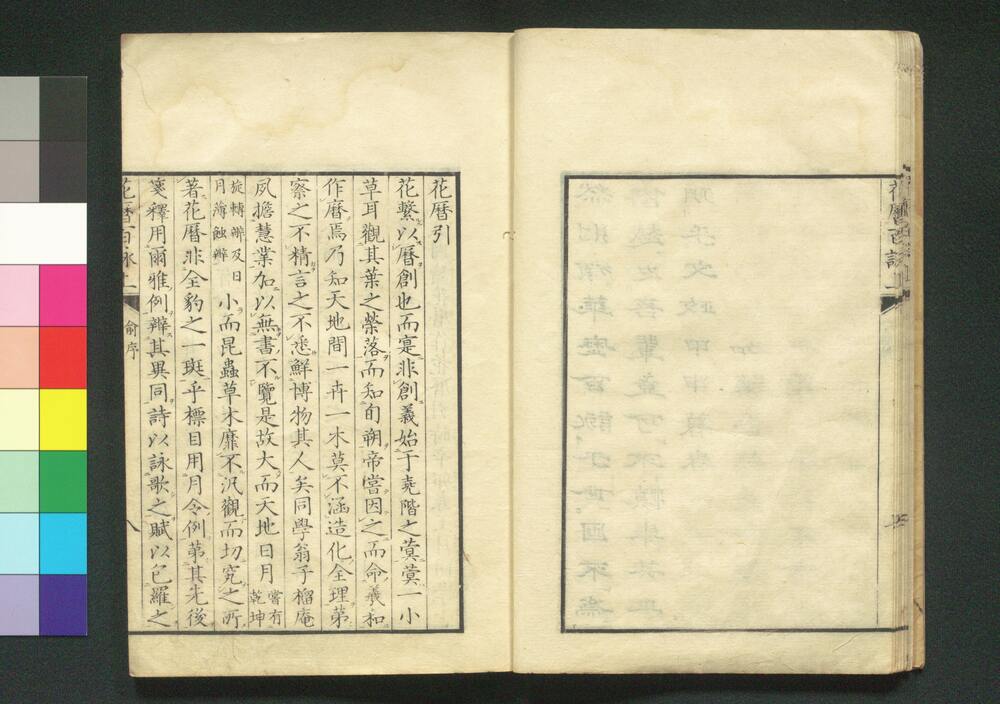 花曆引
花繫以曆創也而寔非創義始于堯階之蓂蓂一小
草耳觀其葉之榮落而知旬朔帝嘗因之而命羲和
作曆焉乃知天地間一卉一木莫不涵造化全理第
察之不精言之不悉鮮博物其人矣同學翁子榴庵
夙擔慧業加以無書不覽是故大而天地日月嘗有乾坤
旋轉辯及日月薄蝕辯小而昆蟲草木靡不汎觀而切究之所
著花曆非全豹之一斑乎標目用月令例第其先後
箋釋用爾雅例辯其異同詩以詠歌之賦以包羅之
花曆百詠上
俞序